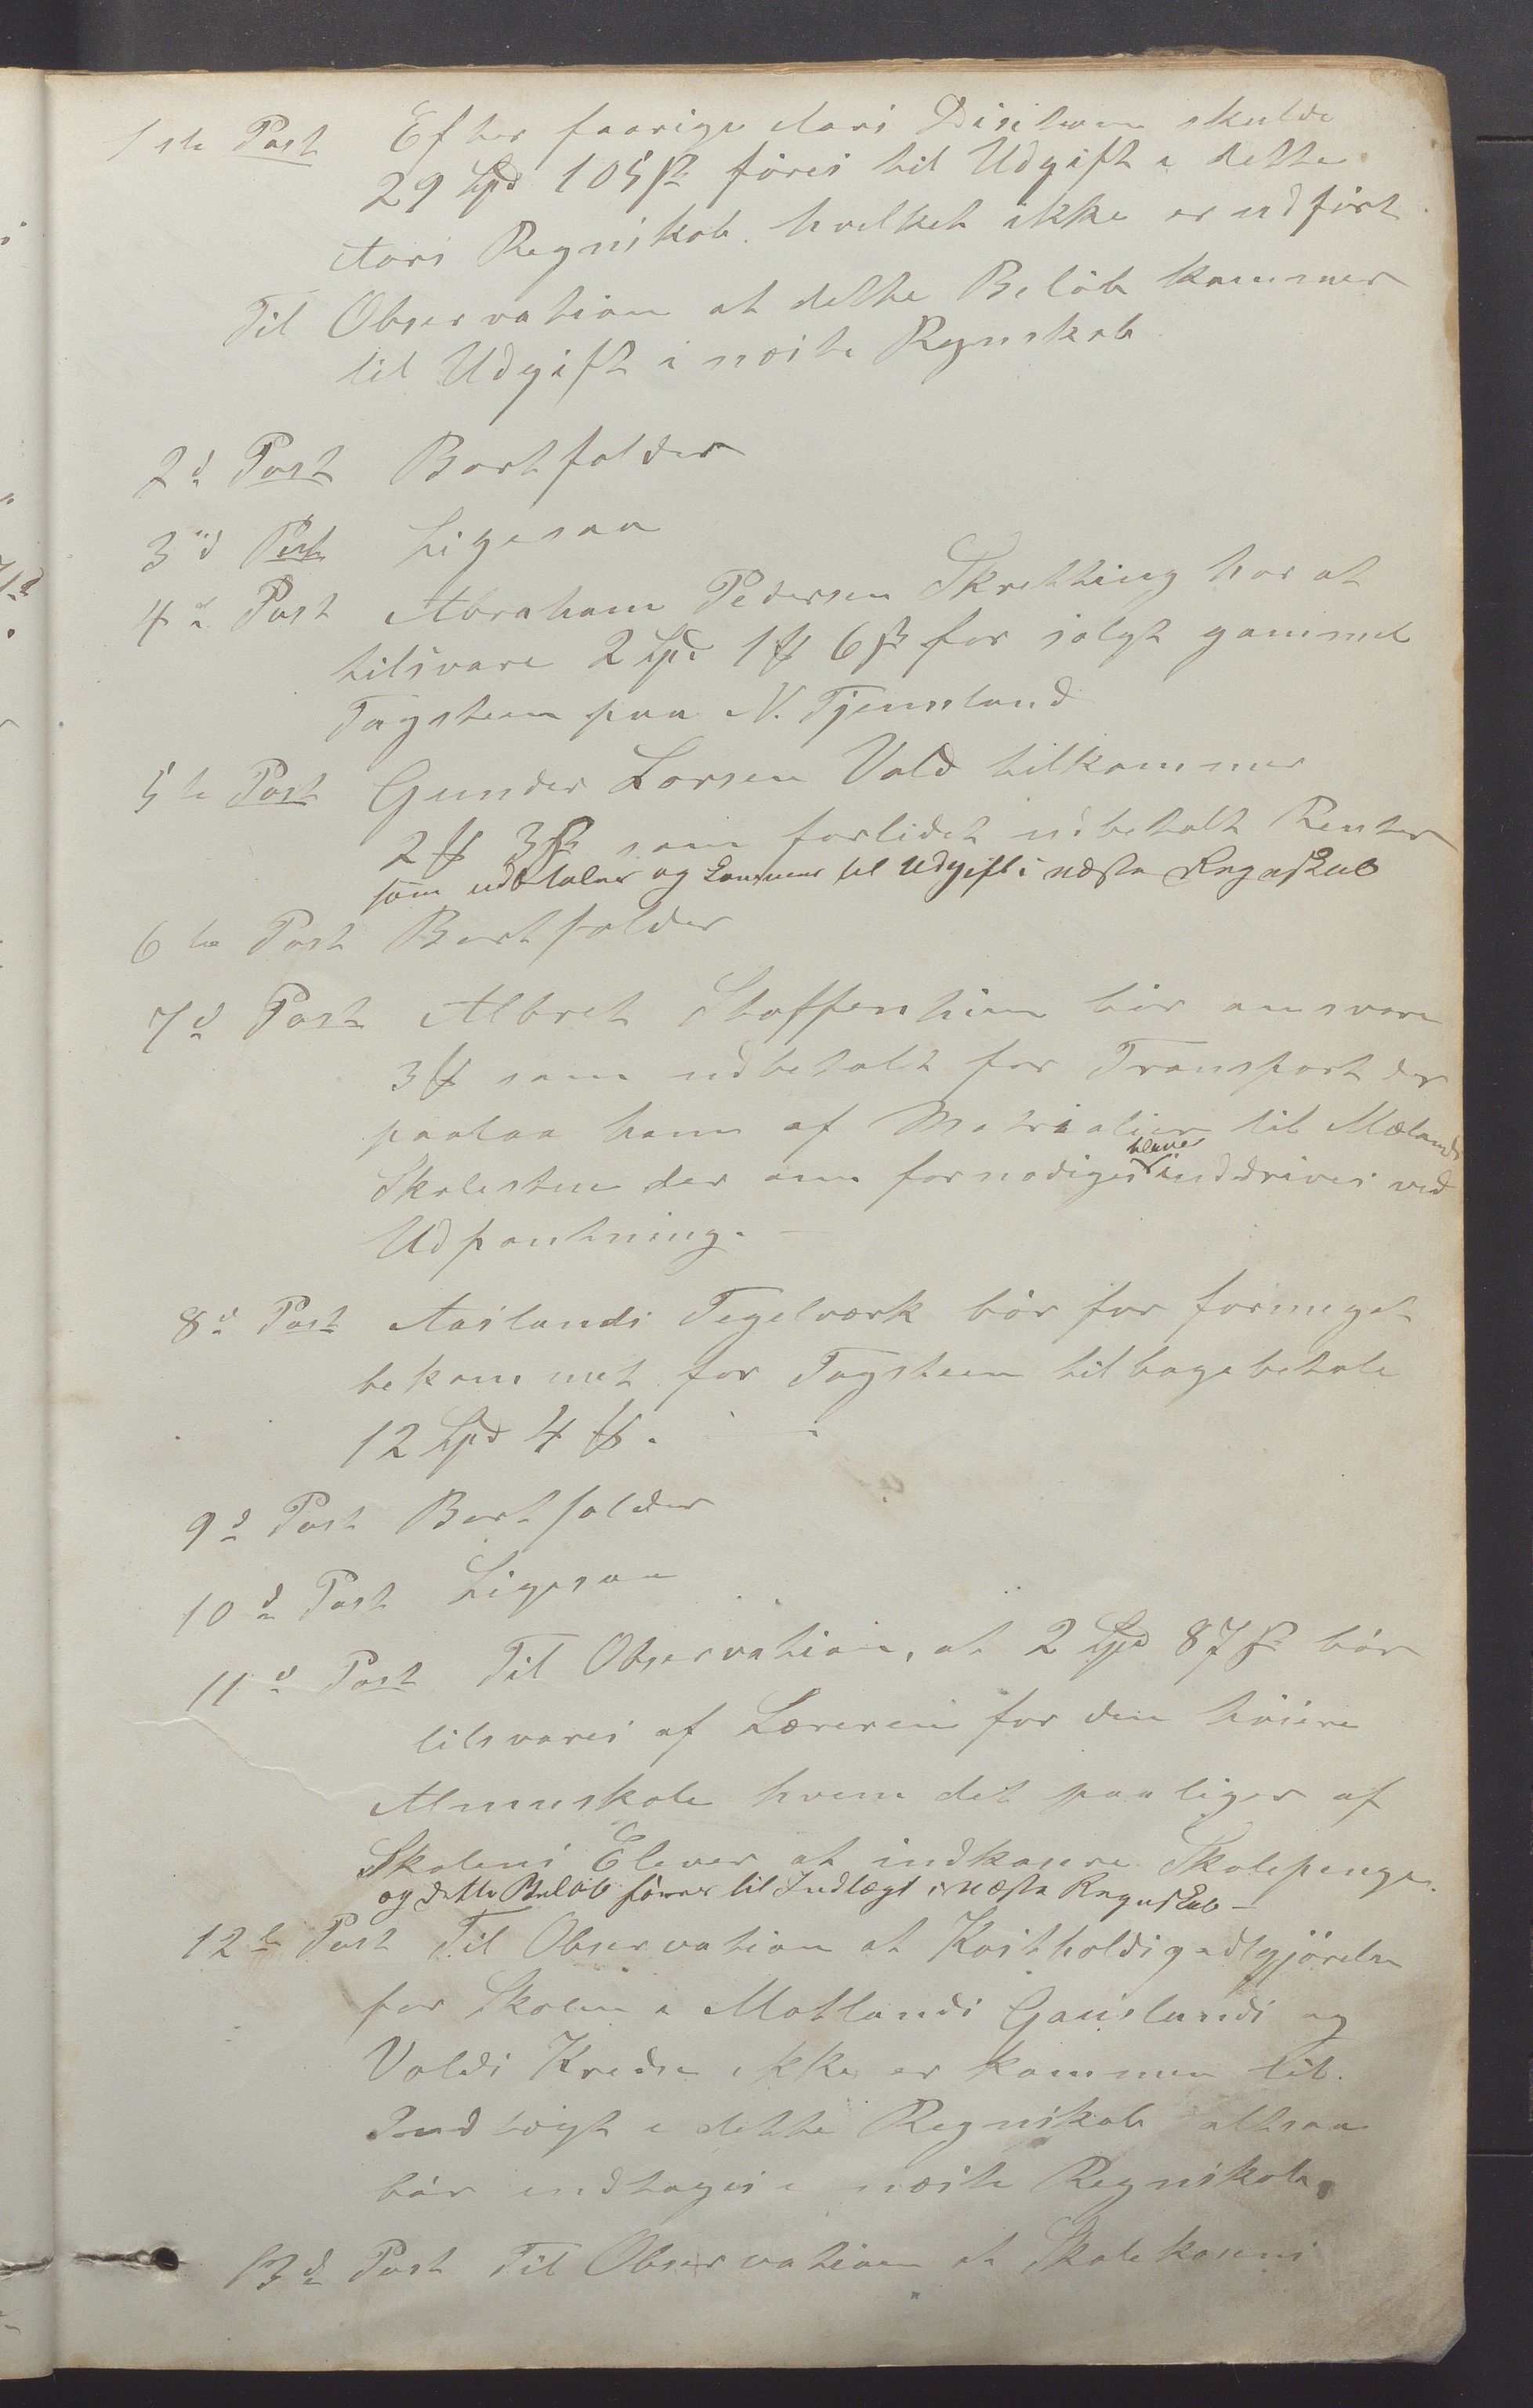 1ste Post Efter forrige Aars Desitsion skulde
29 Spd 105 ß föres til Udgift i dette
Aars Regnskab hvilket ikke er udfört
Til Observation at dette Belöb kommer
til Udgift i næste Regnskab
2d Post Bortfalder
3d Post Ligesaa
4d Post Abraham Pedersen Skretting har at
tilsvare 2 Spd 1 ₰ 6 ß for solgt gammel
Tagsteen paa N. Tjemsland
5te Post Gunder Larsen Vold tilkommer
2 ₰ 3 ß som forlidet udbetalt Renter
som udbetales og kommer til Udgift i næste Regnskab
6te Post Bortfalder
7d Post Albret Stoffersen bör ansvare
3 ₰ som udbetalt for Transport der
paalaa ham af Matrialier til Mælands
Skolestue der om fornödiges bliver inddrives ved
Udpantning.
8d Post Aaslands Tegelværk bör for formeget
bekommet for Tagsteen tilbagebetale
12 Spd 4 ₰.
9d Post Bortfalder
10d Post Ligesaa
11d Post Til Observation, at 2 Spd 87 ß bör
tilsvares af Læreren for den höiere
Almueskole hvem det paaliger af
Skolens Elever at indkassere Skolepenge.
og dette Belöb föres til Indtægt i næste Regnskab –
12te Post Til Observation at Kostholdsgodtgjörelse
for Skolen i Motlands Gauslands og
Volds Kredse ikke er kommen til
Indtægt i dette Regnskab altsaa
bör indtages i næste Regnskab.
13d Post Til Observation at Skolekassens